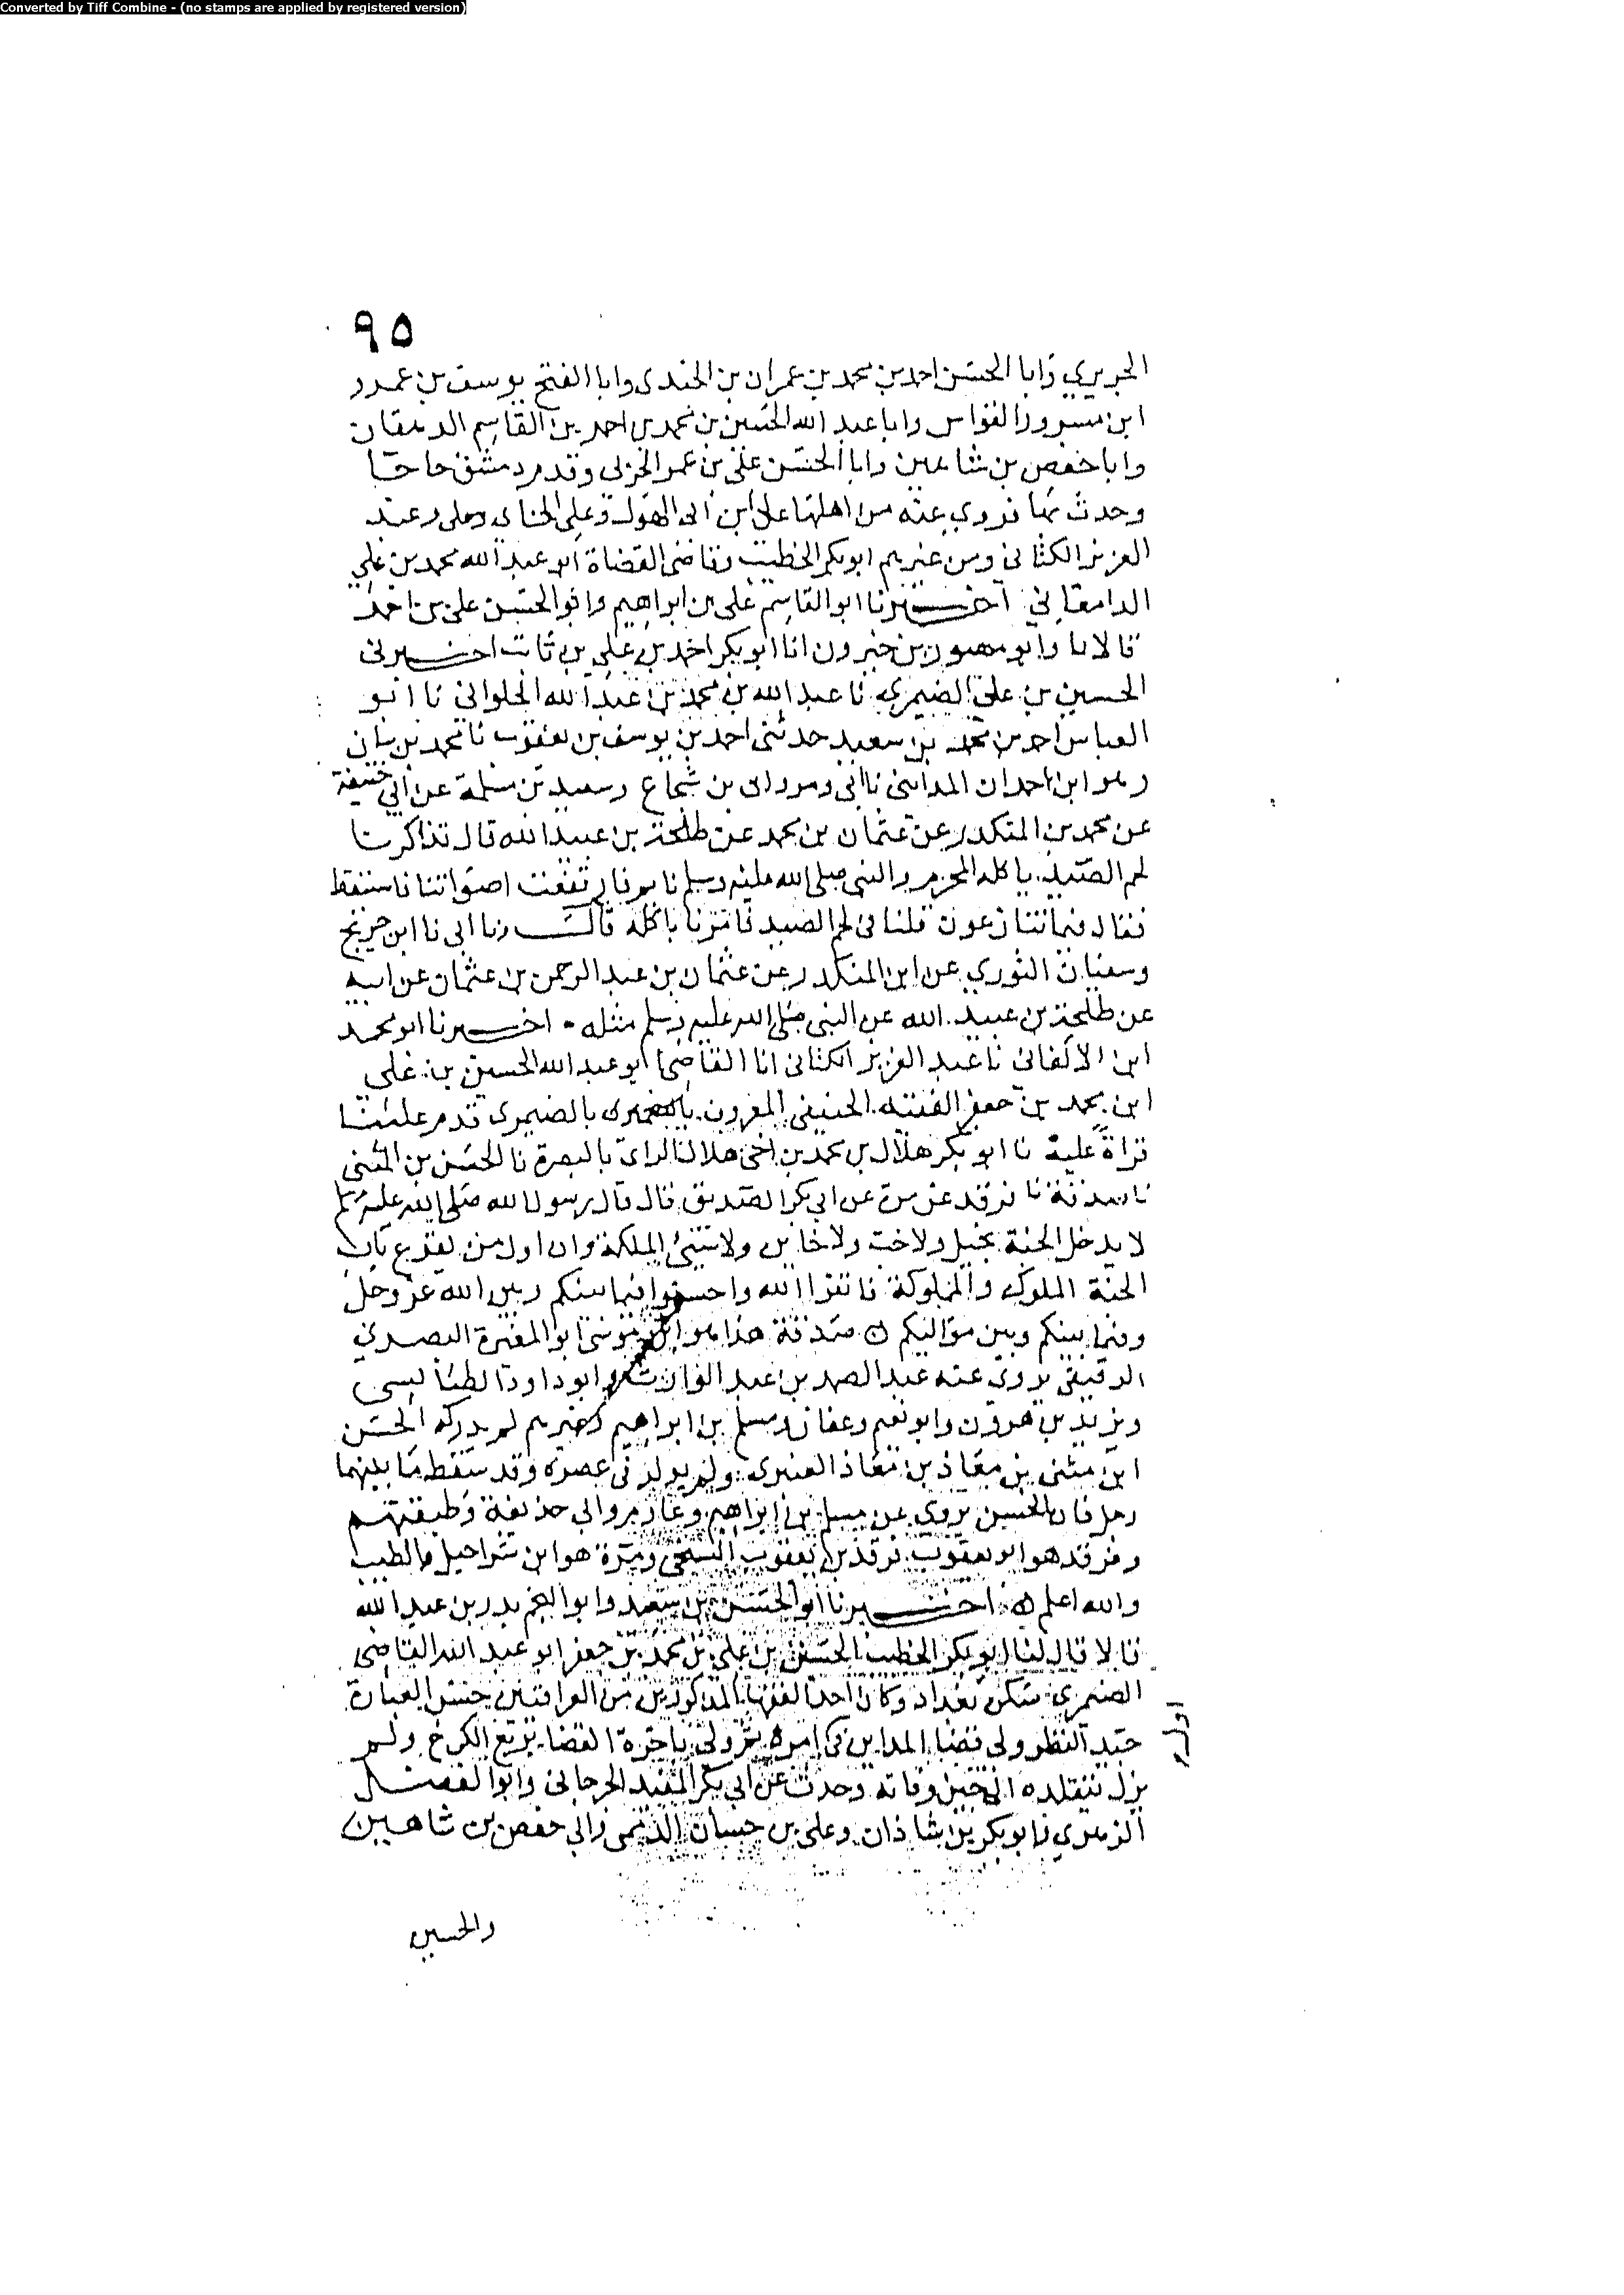 Converted by Tiff Combine - (no stamps are applied by registered version)
٩٥
الجريري وابا الحسن احمد بن محمد بن عمران بن الجندى وابا الفتح يوسف بن عمر
ابن مسرور القواس وابا عبد الله الحسين بن محمد بن احمد بن القاسم الدهقان
وابا حفص بن شاهين وابا الحسن على بن عمر الحربى وقدم دمشق حاجا
وحدث بها فروى عنه من اهلها على ابن ابى الهول وعلى الحنائى وعبد
العزيز الكتانى ومن غيرهم ابو بكر الخطيب وقاضى القضاة ابو عبد الله محمد بن على
الدامغانى اخبرنا ابو القاسم على بن ابراهيم وابو الحسن على بن احمد
قالا نا وابو منصور بن خيرون انا ابو بكر احمد بن على بن ثابت اخبرنى
الحسين بن على الصيمرى نا عبد الله بن محمد بن عبد الله الحلوانى نا ابو
العباس احمد بن محمد بن سعيد حدثنى احمد بن يوسف بن يعقوب نا محمد بن بيان
وهو ابن حمدان المداينى نا ابى ومروان بن شجاع وسعيد بن مسلمة عن ابى حنيفة
عن محمد بن المنكدر عن عثمان بن محمد عن طلحة بن عبيد الله قال تذاكرنا
لحم الصيد ياكله المحرم والنبى صلى الله عليه وسلم نايم فارتفعت اصواتنا فاستيقظ
فقال فيما تتنازعون قلنا فى لحم الصيد فامرنا باكله قال ونا ابى نا ابن جريج
وسفيان الثورى عن ابن المنكدر عن عثمان بن عبد الرحمن بن عثمان عن ابيه
عن طلحة بن عبيد الله عن النبى صلى الله عليه وسلم مثله اخبرنا ابو محمد
ابن الاكفانى نا عبد العزيز الكتانى انا القاضى ابو عبد الله الحسين بن على
ابن محمد بن جعفر الفقيه الحنيفى المعروف بالصيمرى قدم علينا
قراة عليه نا ابو بكر هلال بن محمد بن اخى هلال الراى بالبصرة نا الحسن بن المثنى
نا صدقة نا فرقد عن مرة عن ابى بكر الصديق قال قال رسول الله صلى الله عليه وسلم
لا يدخل الجنة بخيل ولا خب ولا خاين ولا سيئ الملكة وان اول من يقرع باب
الجنة المملوك والمملوكة فاتقوا الله واحسنوا فيما بينكم وبين الله عز وجل
وفيما بينكم وبين مواليكم صدقة هذا هو ابن موسى ابو المغيرة البصرى
الدقيقى يروى عنه عبد الصمد بن عبد الوارث وابو داود الطيالسى
ويزيد بن هرون وابو نعيم وعفان ومسلم بن ابراهيم وغيرهم لم يدركه الحسن
ابن مثنى بن معاذ بن معاذ العنبرى ولم يولد فى عصره وقد سقط ما بينهما
رجل فان الحسن يروى عن مسلم بن ابراهيم وعارم وابى حذيفة وطبقتهم
وفرقد هو ابو يعقوب فرقد بن يعقوب السبخى ومرة هو ابن شراحيل الطيب
والله اعلم اخبرنا ابو الحسن بن سعيد وابو النجم بدر بن عبد الله
قالا قال لنا ابو بكر الخطيب الحسين بن على بن محمد بن جعفر ابو عبد الله القاضى
الصيمرى سكن بغداد وكان احد الفقها المذكورين من العراقيين حسن العبارة
جيد النظر ولى قضا المداين فى امره ثم ولى باخرة القضا بربع الكرخ ولم
يزل يتقلده الى حين وفاته وحدث عن ابى بكر المفيد الجرجانى وابو الفضل
الزهرى وابو بكر بن شاذان وعلى بن حسان الدممى وابى حفص بن شاهين
والحسين